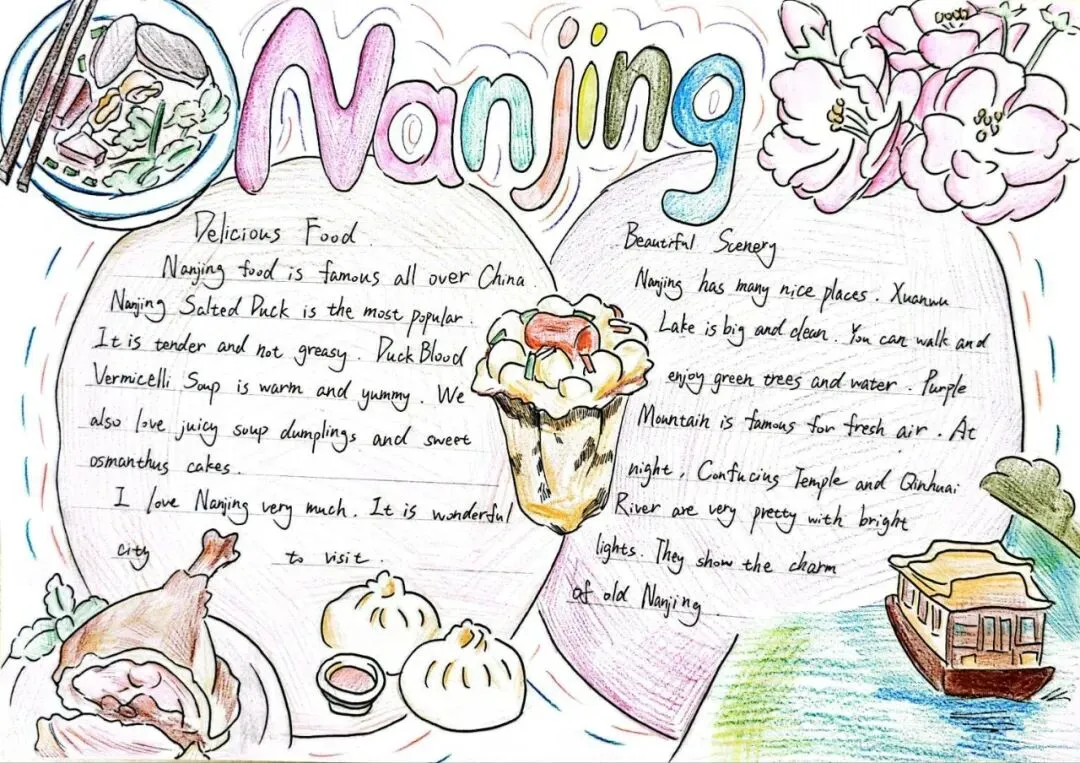 Nanjing
Delicious Food.
Nanjing food is famous all over China.
Nanjing Salted Duck is the most popular.
It is tender and not greasy. Duck Blood
Vermicelli Soup is warm and yummy. We
also love juicy soup dumplings and sweet
osmanthus cakes.
I love Nanjing very much. It is wonderful
city to visit.
Beautiful Scenery
Nanjing has many nice places. Xuanwu
Lake is big and clean. You can walk and
enjoy green trees and water. Purple
Mountain is famous for fresh air. At
night, Confucius Temple and Qinhuai
River are very pretty with bright
lights. They show the charm
of old Nanjing.